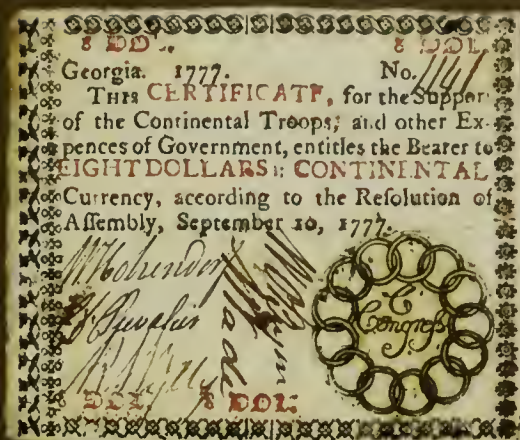 8 DOL. 8 DOL.
Georgia. 1777. No. 1141
THIS CERTIFICATE, for the Support
of the Continental Troops; and other Ex-
pences of Government, entitles the Bearer to
EIGHT DOLLARS: CONTINENTAL
Currency, according to the Reſolution of
Aſſembly, September 10, 1777.
C
Congreſs
DOL. 8 DOL.